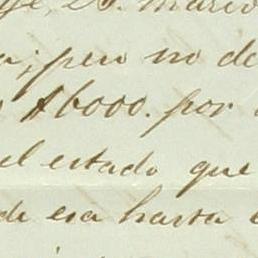 25. marzo
a; pero no de
$6000. por
el estado que
de esa hasta